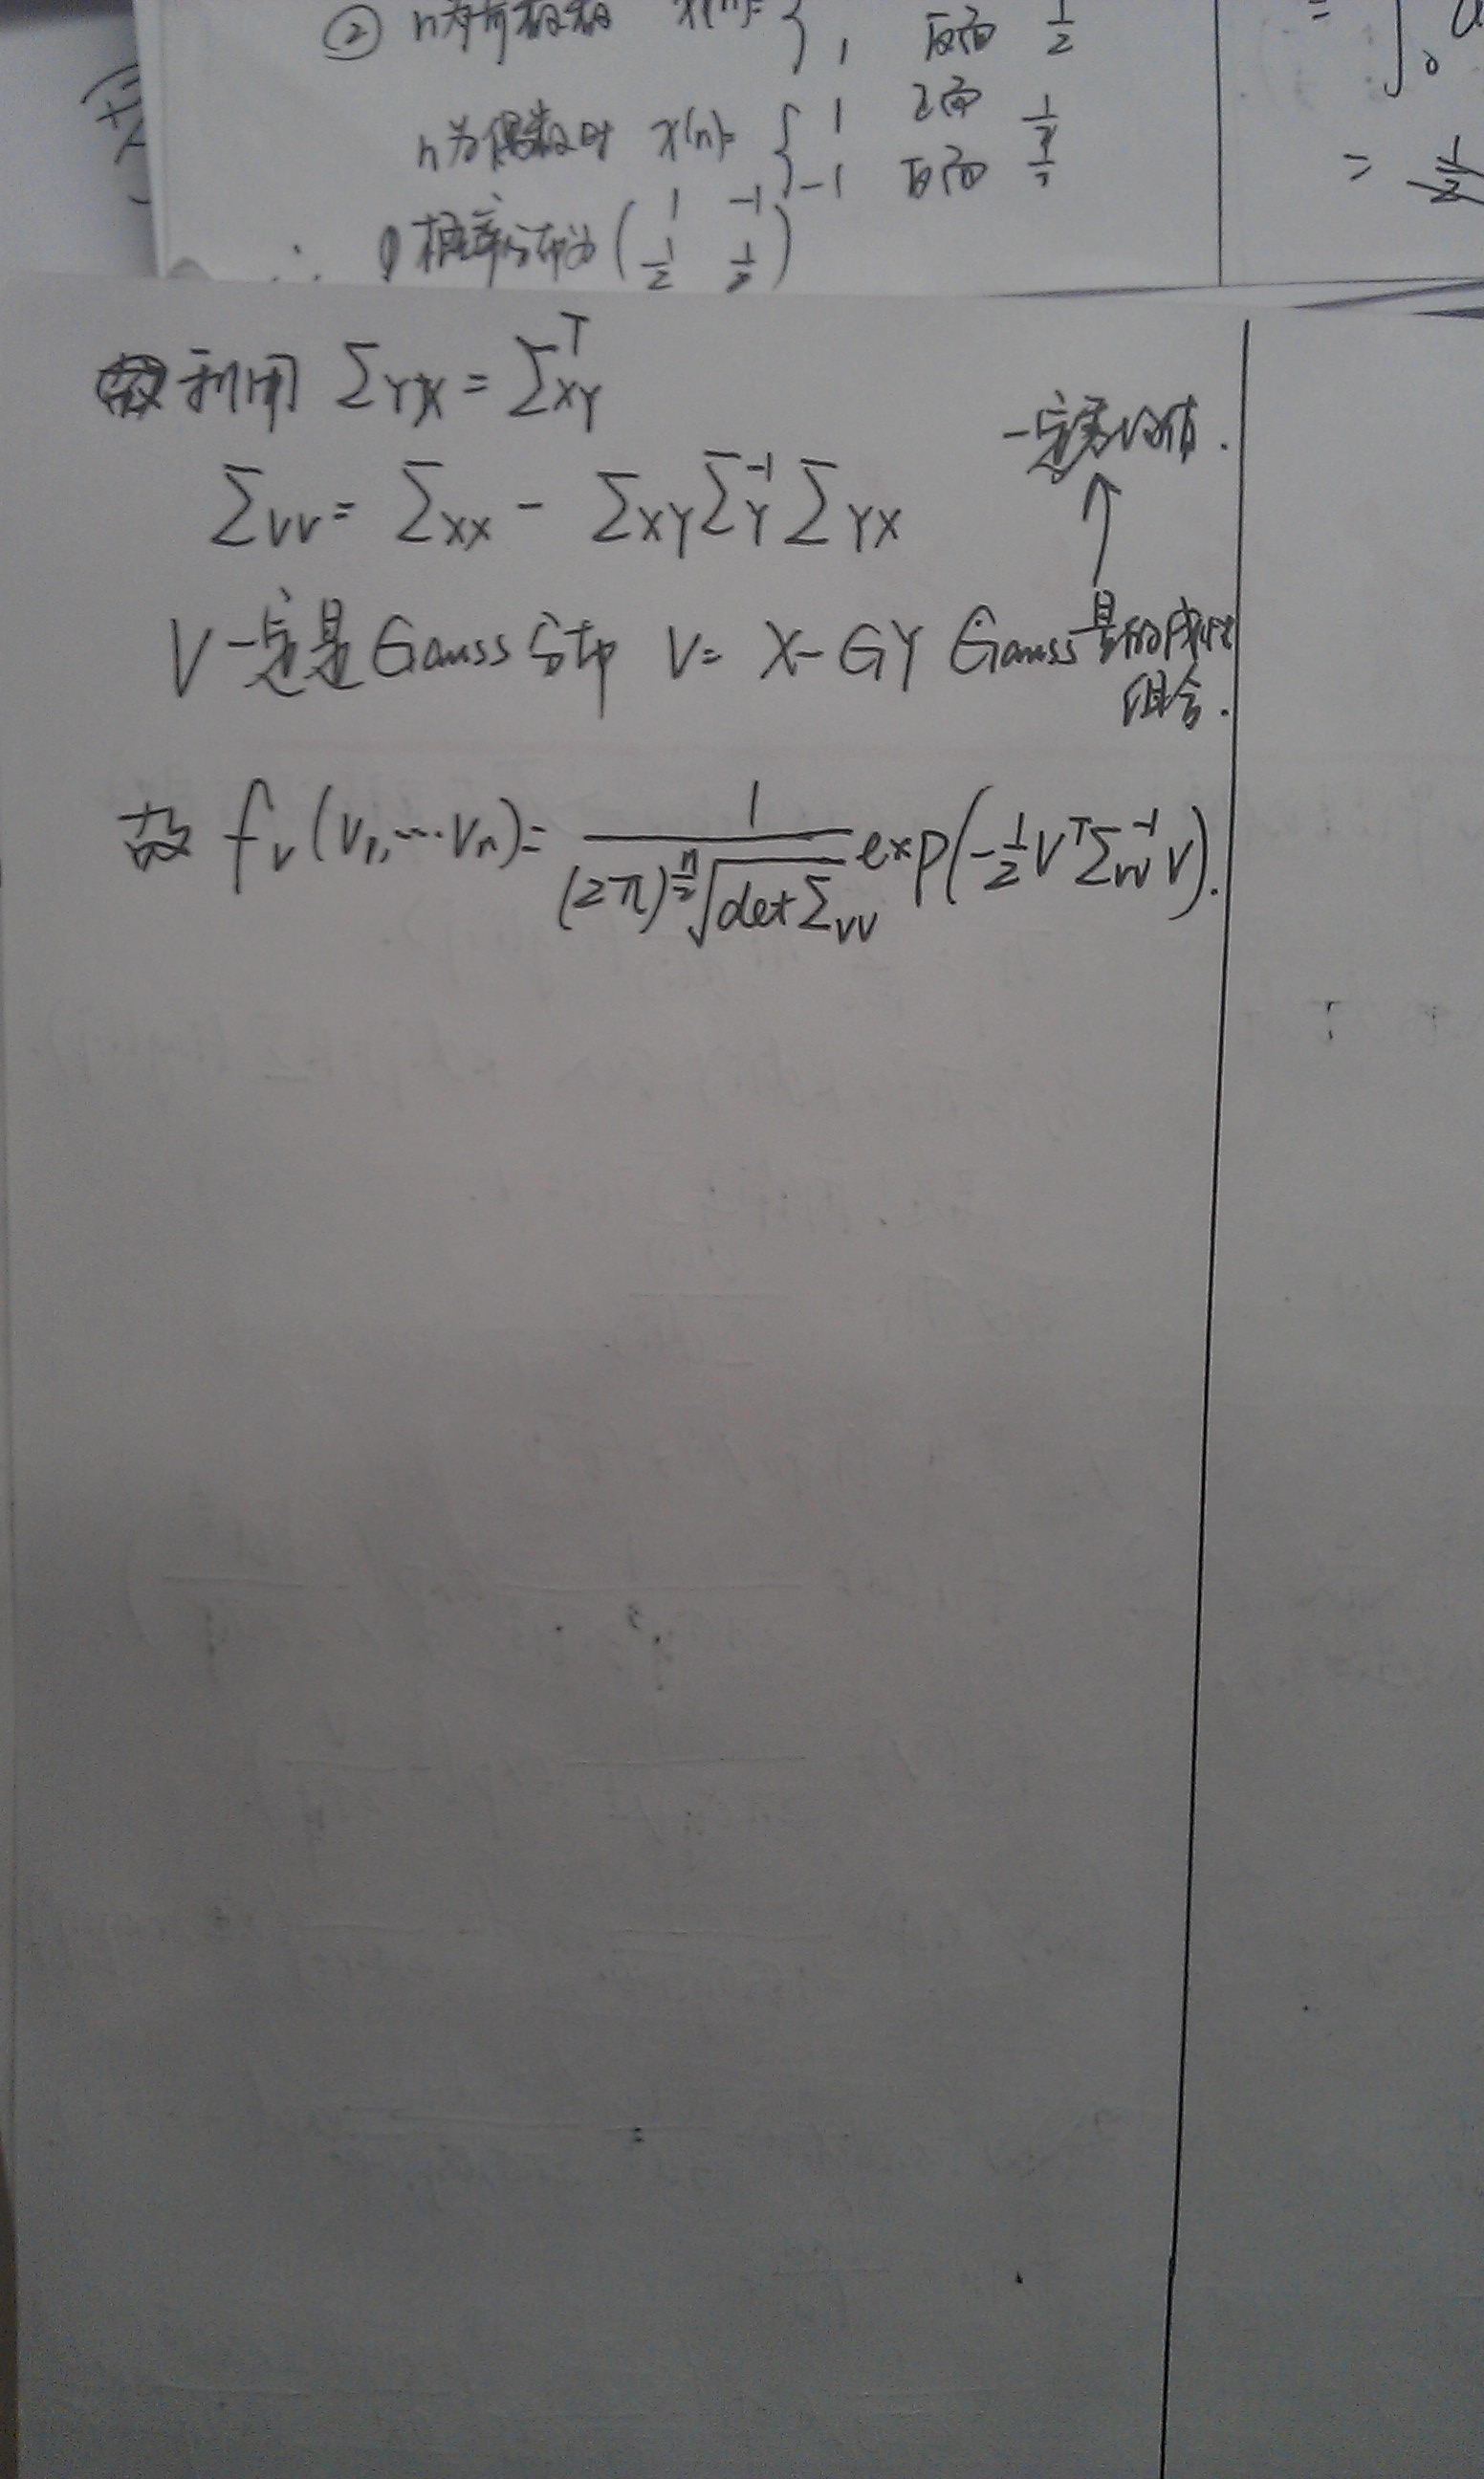 ② n为奇数时 x(n)= { 1 反面 1/2
n为偶数时 x(n)= { 1 正面 1/2
-1 反面 1/2
∴ 概率分布为 ( 1 -1
1/2 1/2 )
= ∫₀
利用 Σ_YX = Σ_XY^T
Σ_VV = Σ_XX - Σ_XY Σ_Y^-1 Σ_YX
V一定是Gauss分布 V= X-GY Gauss是
组合.
故 f_V(V₁,…V_n)= 1/((2π)^(n/2) √(det Σ_VV)) exp(-1/2 V^T Σ_VV^-1 V).